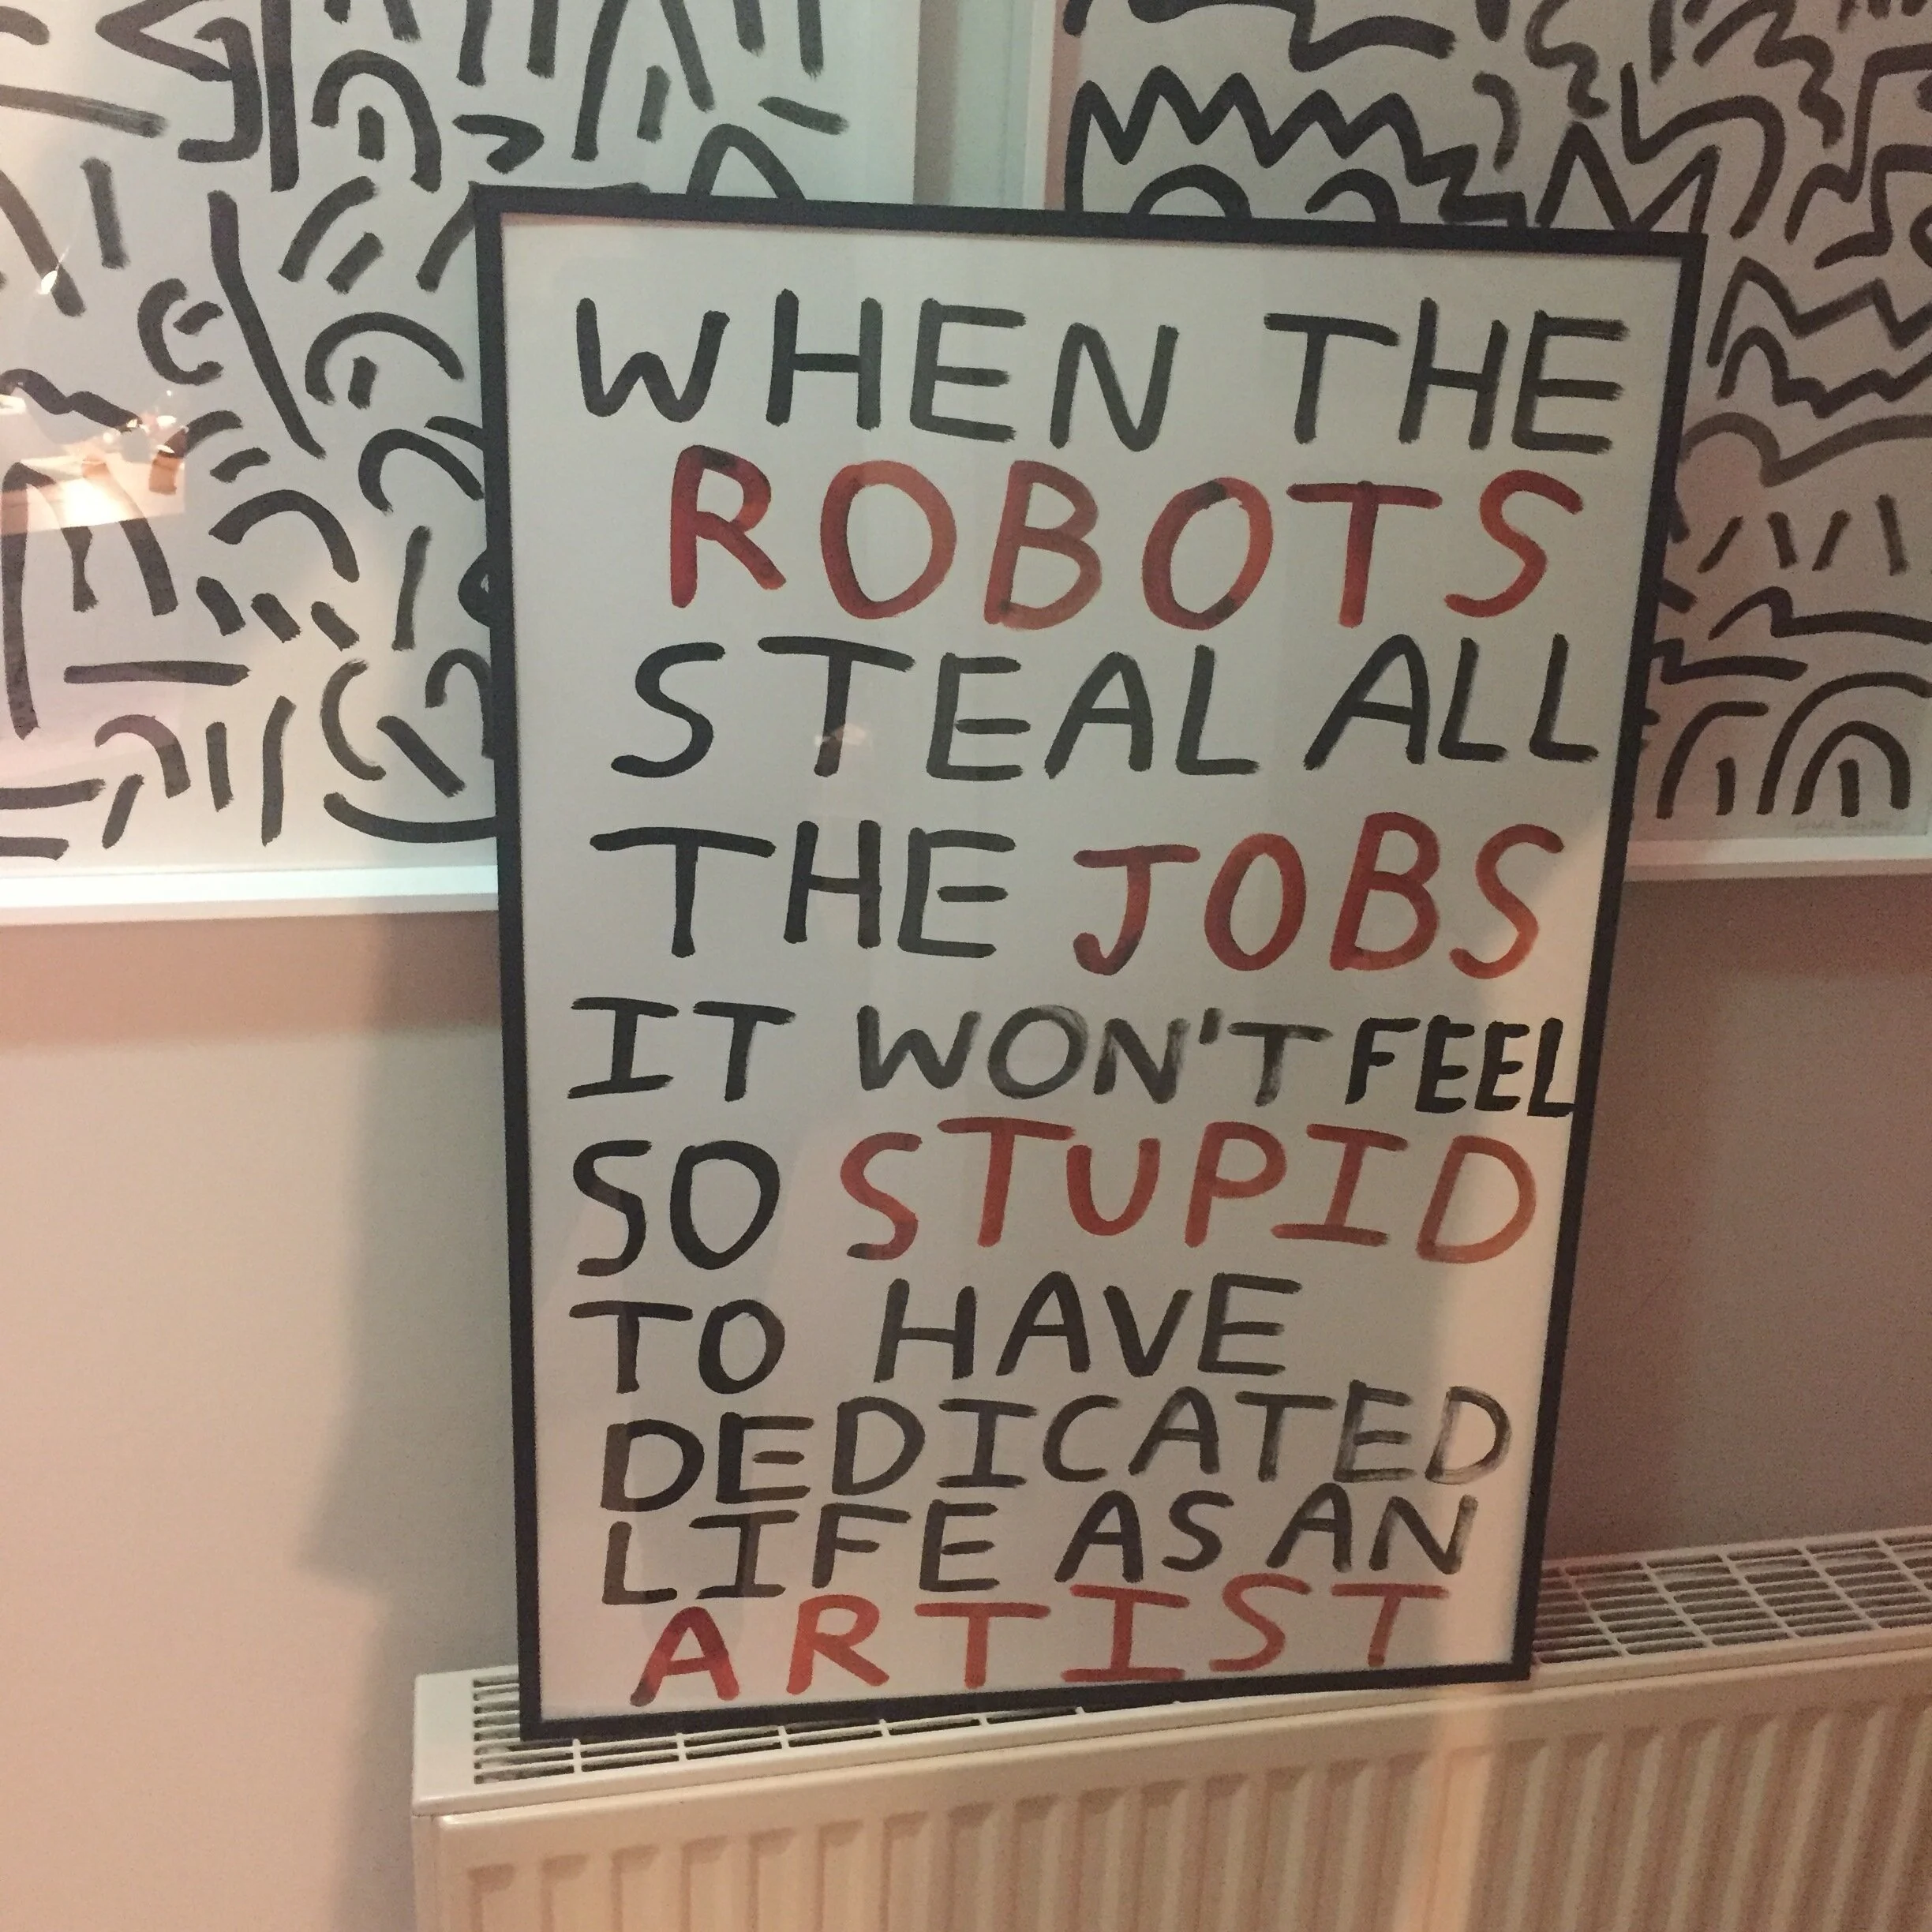 WHEN THE
ROBOTS
STEAL ALL
THE JOBS
IT WON'T FEEL
SO STUPID
TO HAVE
DEDICATED
LIFE AS AN
ARTIST